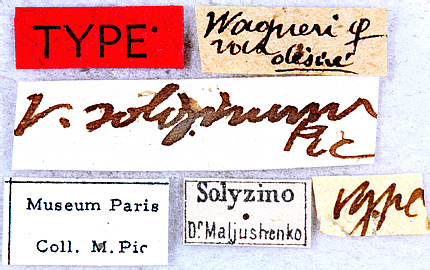 TYPE
Wagneri ♀
var
désiré
v. solyzinum
Pic
Museum Paris
Coll. M. Pic
Solyzino
Dr Maljushenko
type